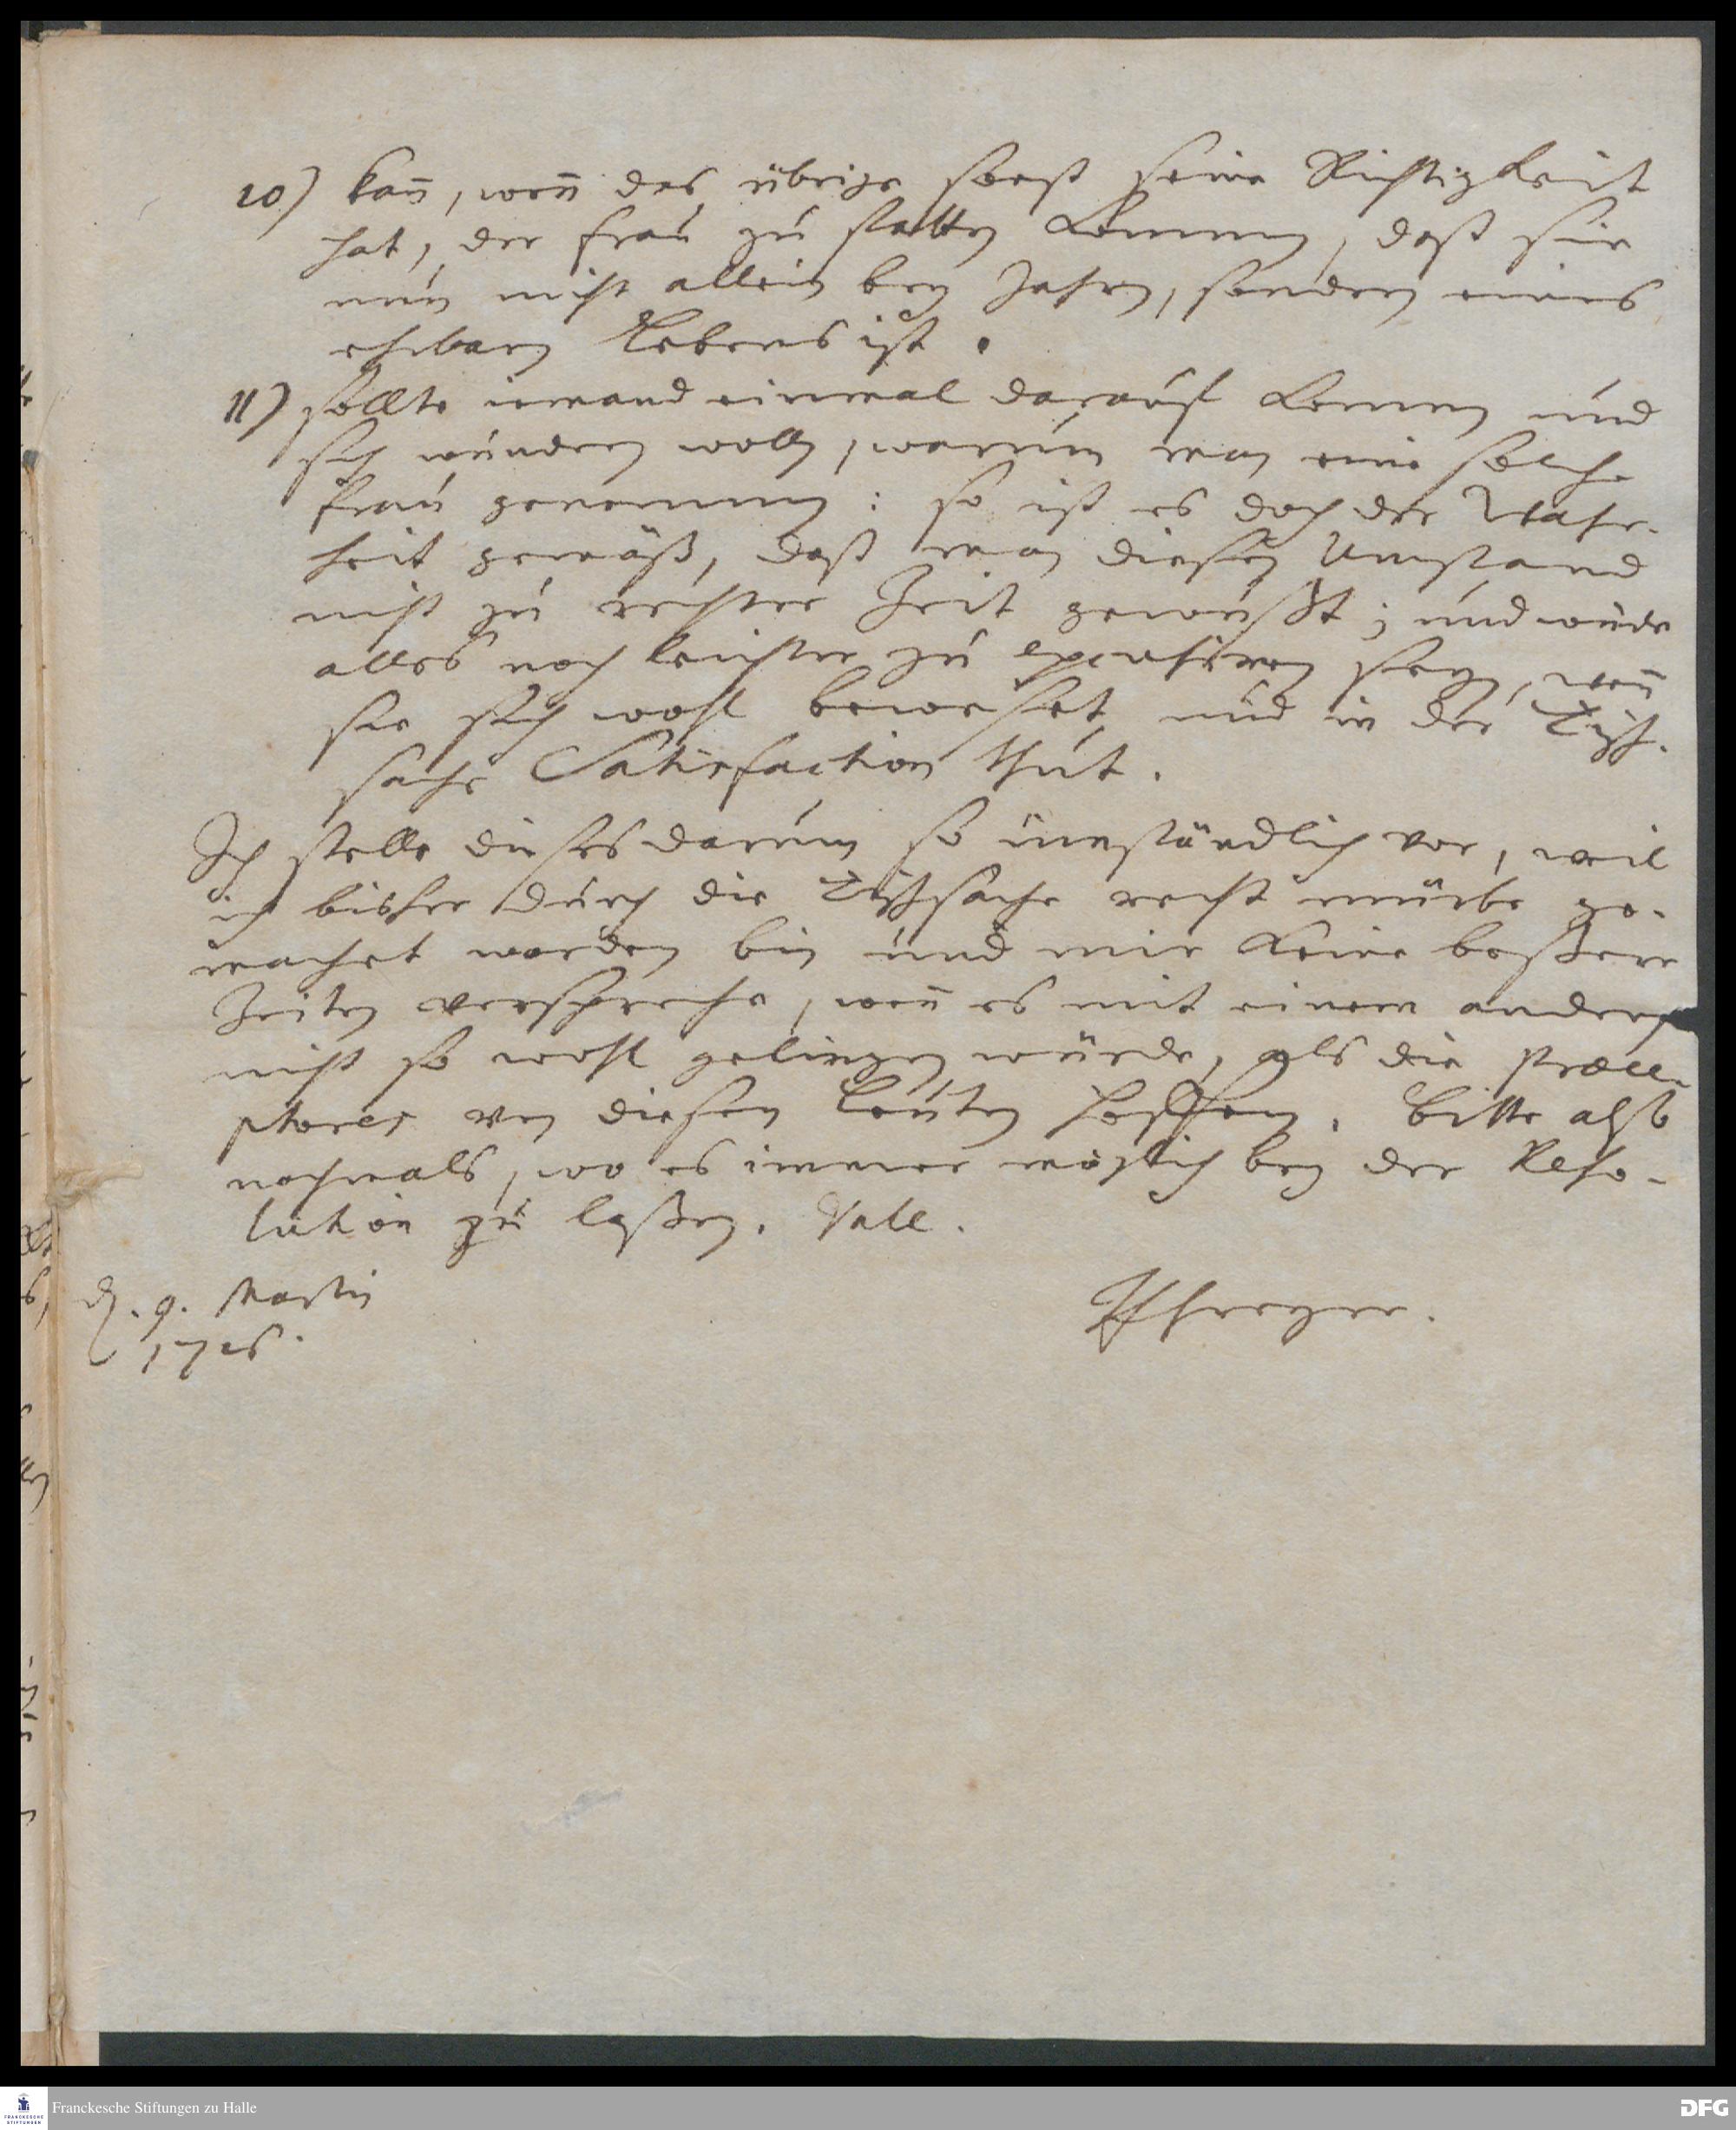 10) kan̄, wen̄ das übrige sonst seine Richtigkeit
hat, der Frau zu statten kommen, daß sie
nun nicht allein bey Jahren, sondern eines
ehrbaren Lebens ist.
11) sollte iemand einmal darauf kommen und
sich wundern wollen, warum man eine solche
Frau genommen: so ist es doch der Wahr-
heit gemäß, daß man diesen Umstand
nicht zu rechter Zeit gewußt; und würde
alles noch leichter zu excusiren seyn, wen̄
sie sich wohl bewehret und in der Tisch-
sache Satisfaction thut.
Ich stelle dieses darum so umständlich vor, weil
ich bisher durch die Tischsache recht mürbe ge-
machet worden bin und mir keine beßere
Zeiten verspreche, wen̄ es mit einem andern
nicht so wohl gelingen würde, als die Præce-
ptores von diesen Leuten hoffen. Bitte also
nochmals, wo es immer möglich bey der Reso-
lution zu laßen. Vale.
d. 9. Martii
1726.
Freyer.
Franckesche Stiftungen zu Halle
FRANCKESCHE
STIFTUNGEN
DFG